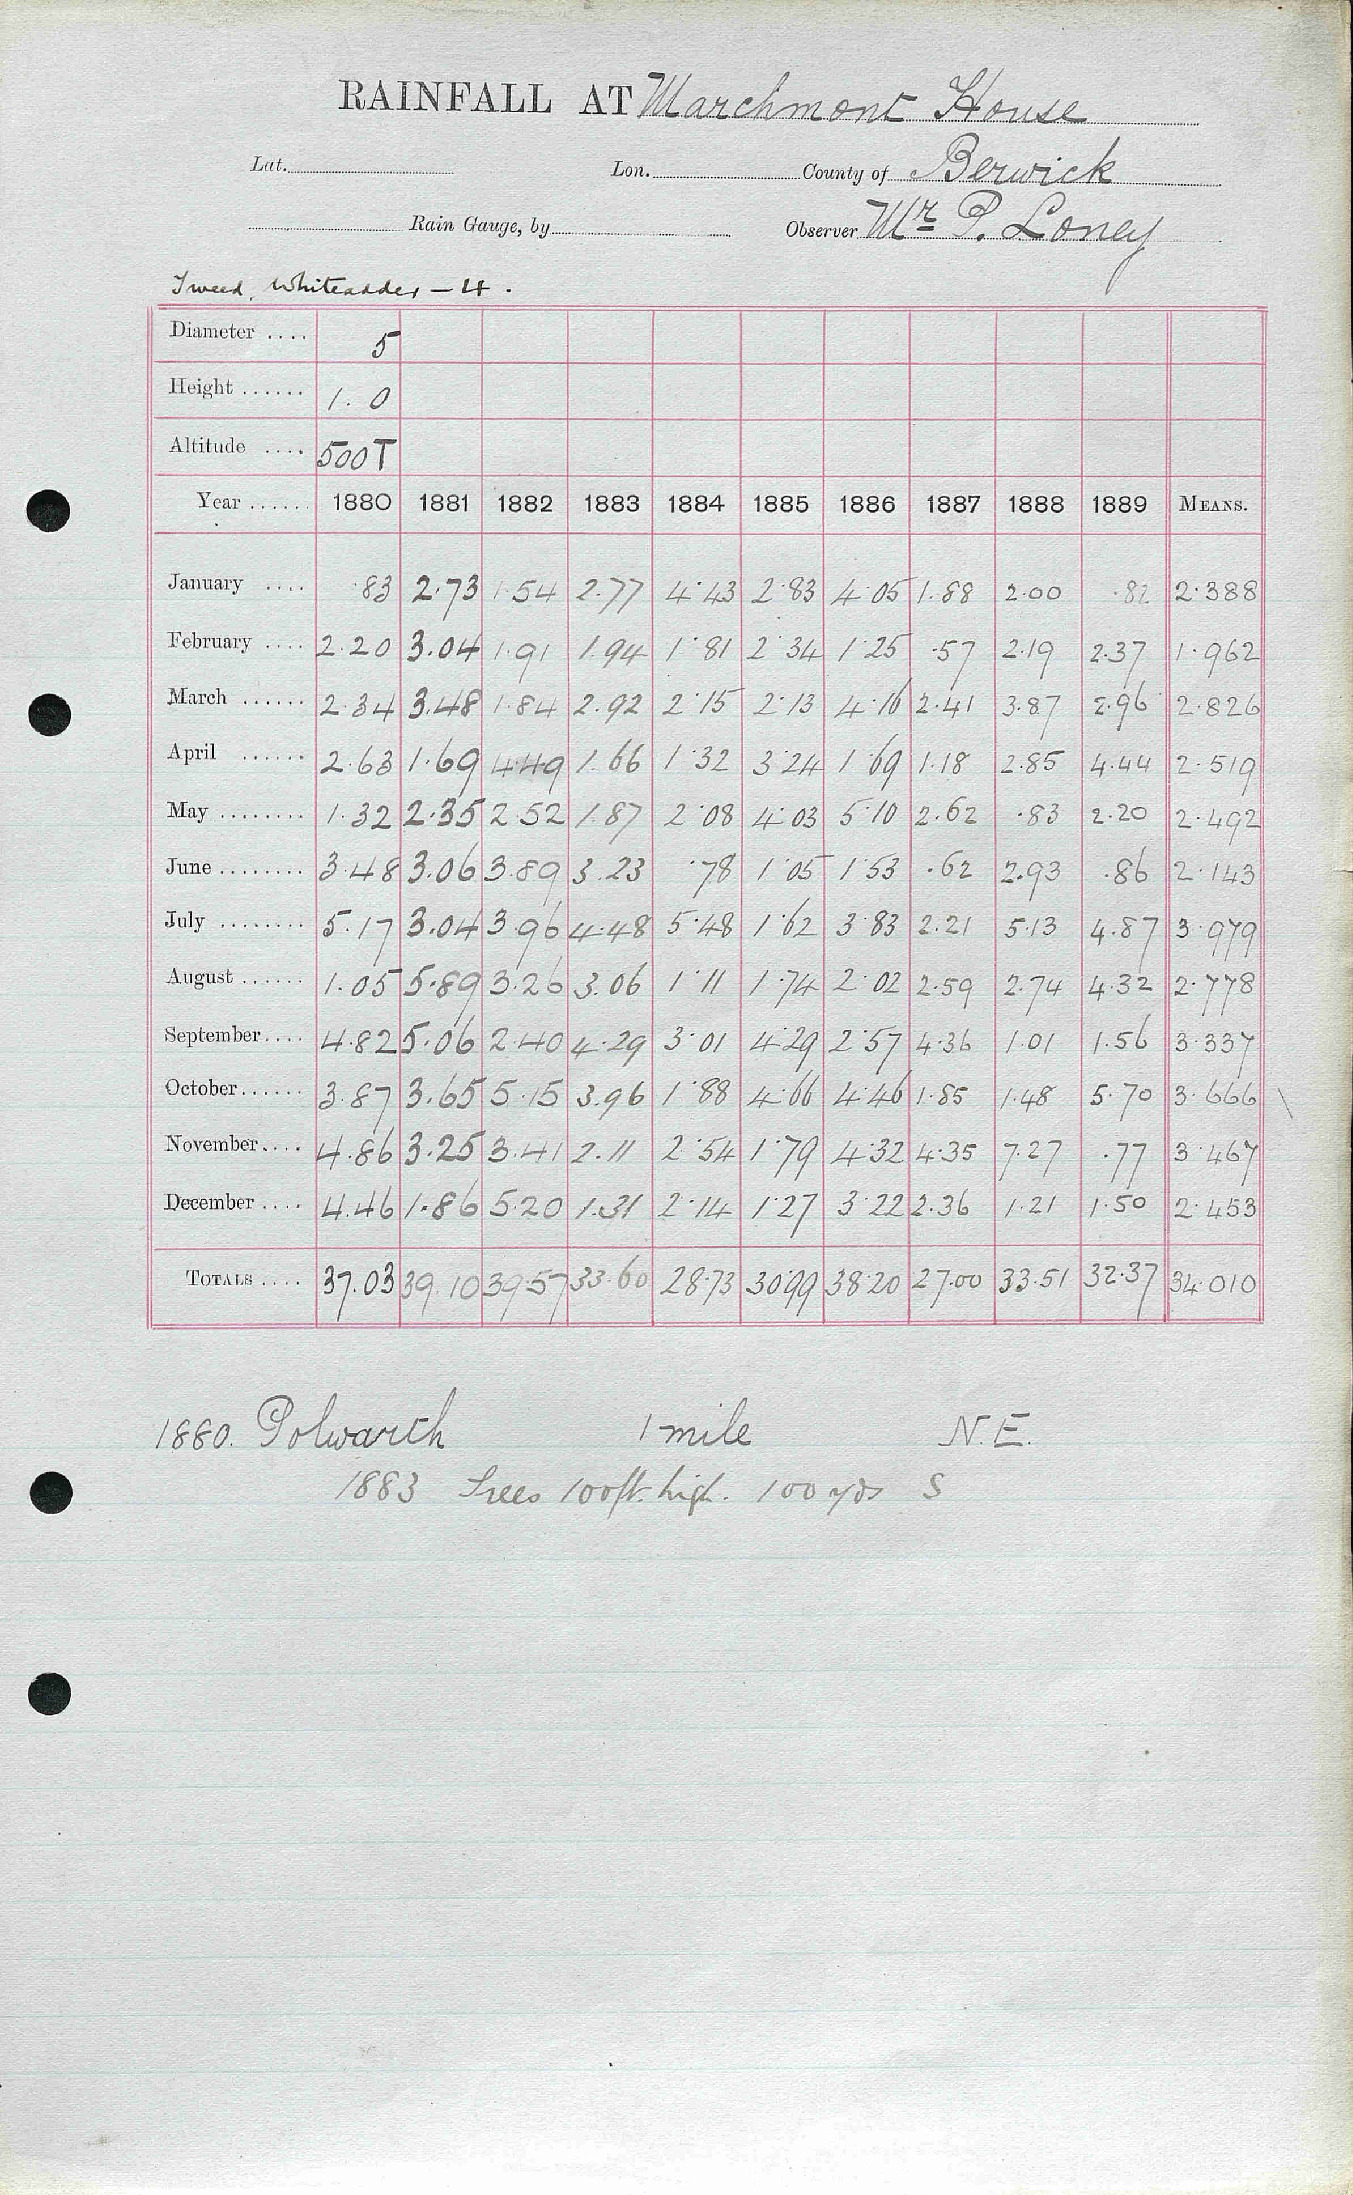 RAINFALL AT Marchmont House
Lat. Lon. County of Berwick
Rain Gauge, by Observer Mr P. Loney
Tweed, Whiteadder - 4.
Diameter .... 5
Height ...... 1.0
Altitude .... 500T
Year ...... 1880 1881 1882 1883 1884 1885 1886 1887 1888 1889 MEANS.
January .... .83 2.73 1.54 2.77 4.43 2.83 4.05 1.88 2.00 .82 2.388
February .... 2.20 3.04 1.91 1.94 1.81 2.34 1.25 .57 2.19 2.37 1.962
March ...... 2.34 3.48 1.84 2.92 2.15 2.13 4.16 2.41 3.87 2.96 2.826
April ...... 2.63 1.69 4.49 1.66 1.32 3.24 1.69 1.18 2.85 4.44 2.519
May ........ 1.32 2.35 2.52 1.87 2.08 4.03 5.10 2.62 .83 2.20 2.492
June ........ 3.48 3.06 3.89 3.23 .78 1.05 1.53 .62 2.93 .86 2.143
July ........ 5.17 3.04 3.96 4.48 5.48 1.62 3.83 2.21 5.13 4.87 3.979
August ...... 1.05 5.89 3.26 3.06 1.11 1.74 2.02 2.59 2.74 4.32 2.778
September.... 4.82 5.06 2.40 4.29 3.01 4.29 2.57 4.36 1.01 1.56 3.337
October...... 3.87 3.65 5.15 3.96 1.88 4.66 4.46 1.85 1.48 5.70 3.666
November.... 4.86 3.25 3.41 2.11 2.54 1.79 4.32 4.35 7.27 .77 3.467
December .... 4.46 1.86 5.20 1.31 2.14 1.27 3.22 2.36 1.21 1.50 2.453
TOTALS .... 37.03 39.10 39.57 33.60 28.73 30.99 38.20 27.00 33.51 32.37 34.010
1880. Polwarth 1 mile N.E.
1883 Trees 100ft. high. 100 yds S